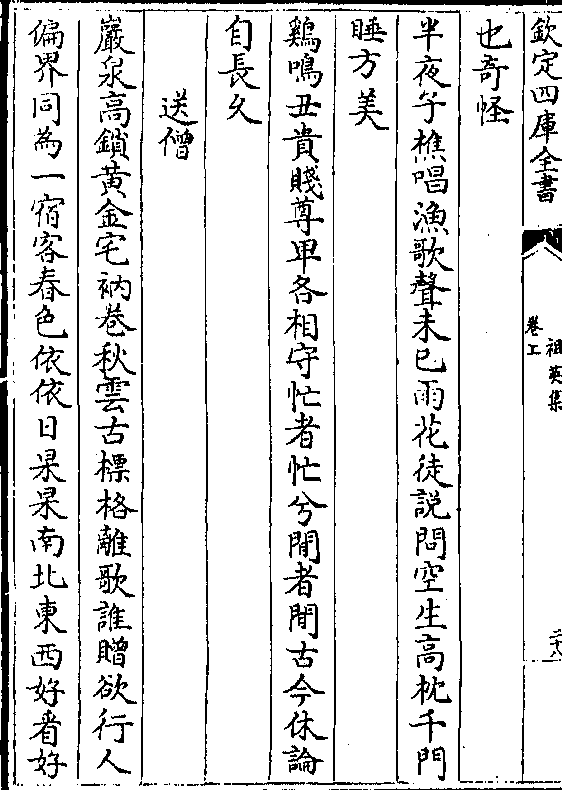 欽定四庫全書
祖英集
卷上
二十八
也奇怪
半夜子樵唱漁歌聲未已雨花徒説問空生髙枕千門
睡方美
鷄鳴丑貴賤尊卑各相守忙者忙兮閒者閒古今休論
自長久
送僧
巖泉髙鎖黄金宅衲卷秋雲古標格離歌誰贈欲行人
偏界同為一宿客春色依依日杲杲南北東西好看好